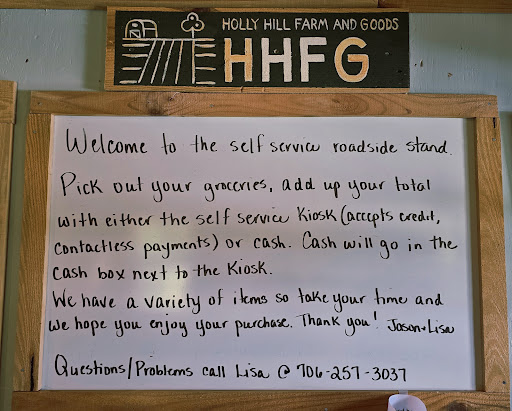 HOLLY HILL FARM AND GOODS
HHFG
Welcome to the self service roadside stand.
Pick out your groceries, add up your total
with either the self service Kiosk (accepts credit,
contactless payments) or cash. Cash will go in the
cash box next to the Kiosk.
We have a variety of items so take your time and
we hope you enjoy your purchase. Thank you! Jason+Lisa
Questions/Problems call Lisa @ 706-257-3037